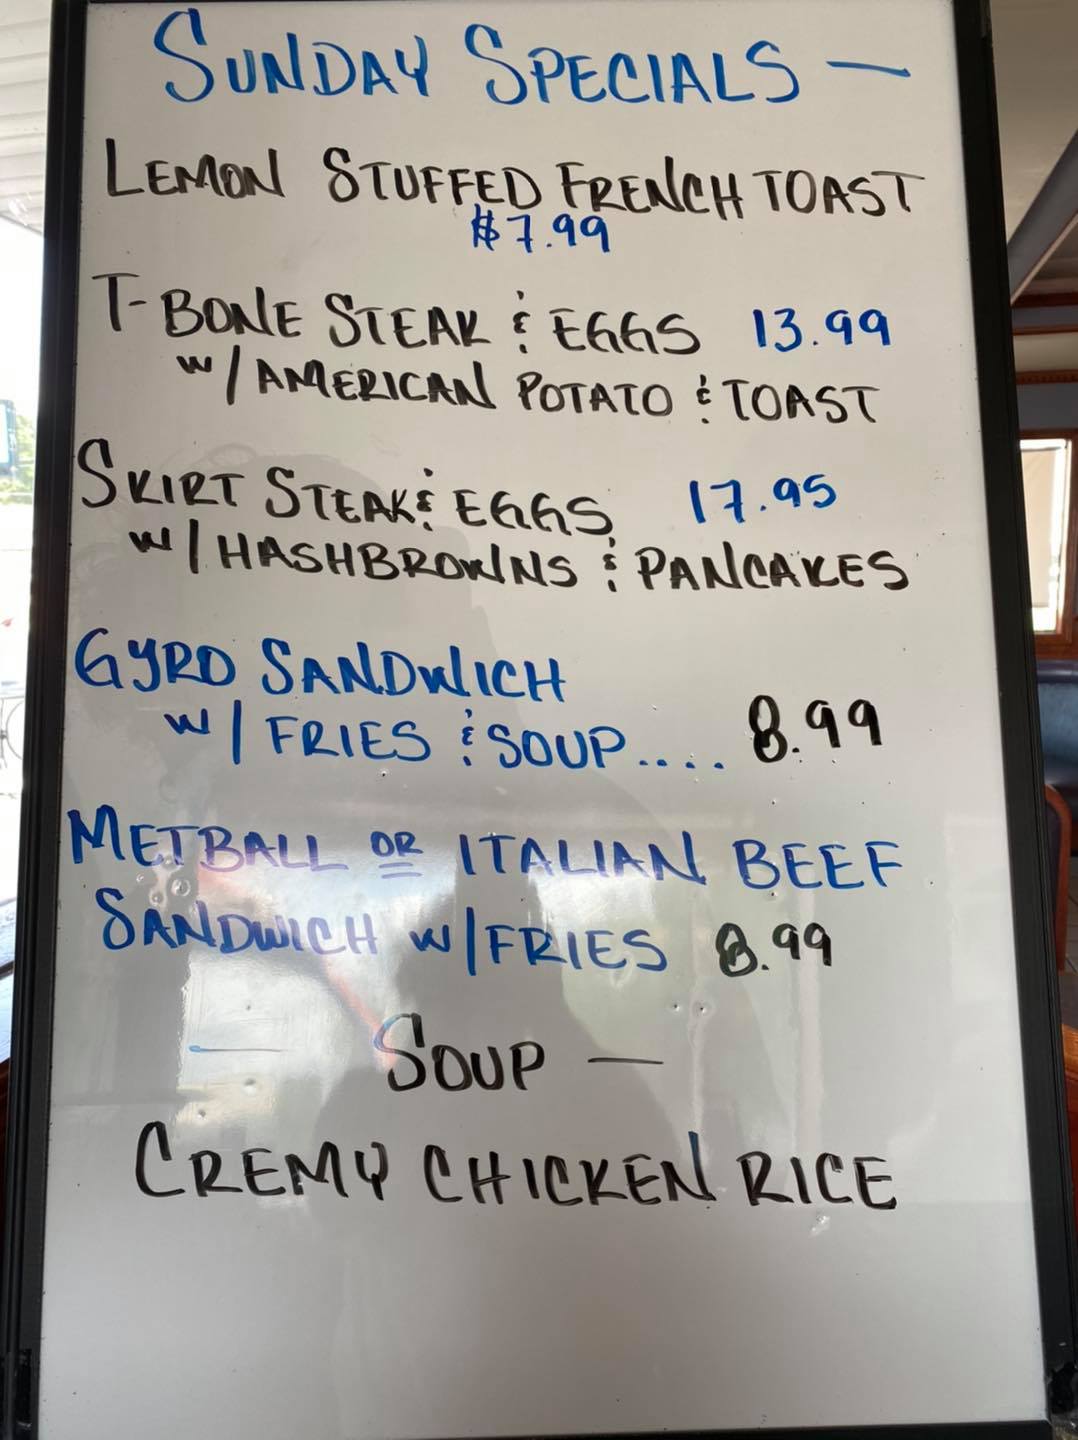 SUNDAY SPECIALS —
LEMON STUFFED FRENCH TOAST
$7.99
T-BONE STEAK & EGGS 13.99
w/ AMERICAN POTATO & TOAST
SKIRT STEAK & EGGS 17.95
w/ HASHBROWNS & PANCAKES
GYRO SANDWICH
w/ FRIES & SOUP.... 8.99
METBALL OR ITALIAN BEEF
SANDWICH w/FRIES 8.99
— SOUP —
CREMY CHICKEN RICE